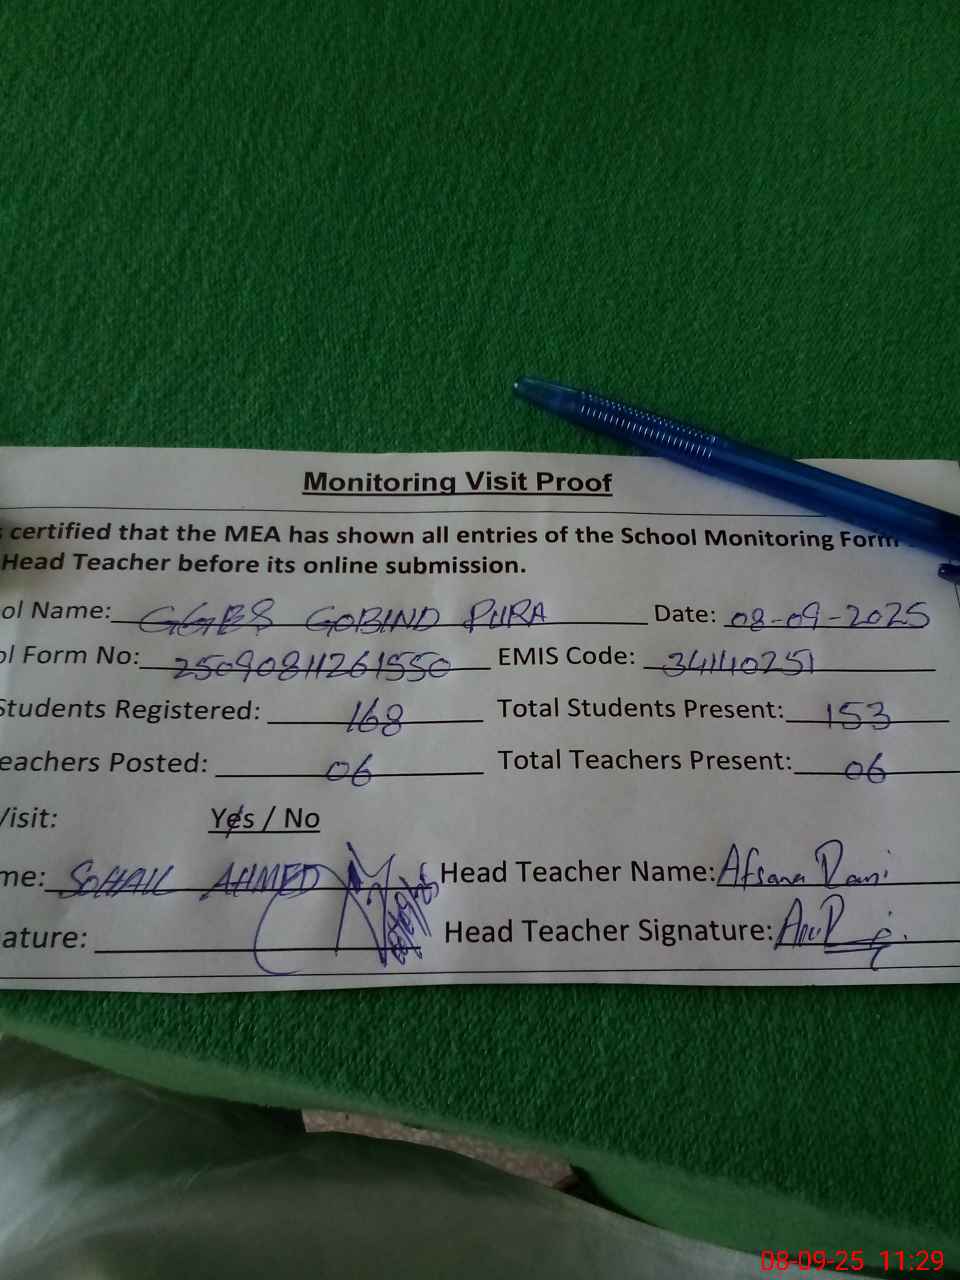 Monitoring Visit Proof
certified that the MEA has shown all entries of the School Monitoring Form
Head Teacher before its online submission.
ol Name: GGES GOBIND PURA Date: 08-09-2025
ol Form No: 25090811261550 EMIS Code: 34140251
Students Registered: 168 Total Students Present: 153
eachers Posted: 06 Total Teachers Present: 06
Visit: Yes / No
me: SOHAIL AHMED Head Teacher Name: Afsana Rani
ature: Head Teacher Signature:
08-09-25 11:29